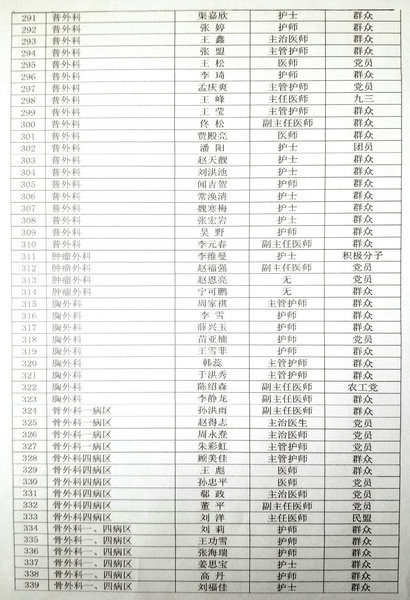 291 普外科 渠嘉欣 护士 群众
292 普外科 张婷 护师 群众
293 普外科 王鑫 主治医师 群众
294 普外科 张盟 主管护师 群众
295 普外科 王松 医师 党员
296 普外科 李琦 护师 群众
297 普外科 孟庆爽 主管护师 党员
298 普外科 王峰 主任医师 九三
299 普外科 王莹 主管护师 群众
300 普外科 佟松 副主任医师 群众
301 普外科 贾殿亮 医师 群众
302 普外科 潘阳 护士 团员
303 普外科 赵天靓 护士 群众
304 普外科 刘洪池 护士 群众
305 普外科 闻吉贺 护师 群众
306 普外科 常涣清 护士 群众
307 普外科 魏寒梅 护士 群众
308 普外科 张宏岩 护士 群众
309 普外科 吴野 护师 群众
310 普外科 李元春 副主任医师 群众
311 肿瘤外科 李维曼 护士 积极分子
312 肿瘤外科 赵福强 副主任医师 党员
313 肿瘤外科 赵恩亮 无 党员
314 肿瘤外科 宁可鹏 无 群众
315 胸外科 周家祺 主管护师 群众
316 胸外科 李雪 护师 群众
317 胸外科 薛兴玉 护师 群众
318 胸外科 苗亚楠 护师 党员
319 胸外科 王雪菲 护师 群众
320 胸外科 韩蕊 主管护师 群众
321 胸外科 于洪秀 主管护师 群众
322 胸外科 陈绍森 副主任医师 农工党
323 胸外科 李静龙 副主任医师 群众
324 骨外科一病区 孙洪雨 副主任医师 群众
325 骨外科一病区 赵得志 主治医生 党员
326 骨外科一病区 周永焘 主治医师 党员
327 骨外科一病区 朱彩虹 主管护师 党员
328 骨外科四病区 顾美佳 主管护师 群众
329 骨外科四病区 王彪 医师 群众
330 骨外科四病区 孙忠平 医师 党员
331 骨外科四病区 鄢政 主治医师 党员
332 骨外科四病区 董平 副主任医师 党员
333 骨外科四病区 刘洋 主任医师 民盟
334 骨外科一、四病区 刘莉 护师 群众
335 骨外科一、四病区 王功雪 护师 群众
336 骨外科一、四病区 张海瑞 护师 群众
337 骨外科一、四病区 姜思宝 护士 群众
338 骨外科一、四病区 高丹 护师 群众
339 骨外科一、四病区 刘福佳 护士 群众